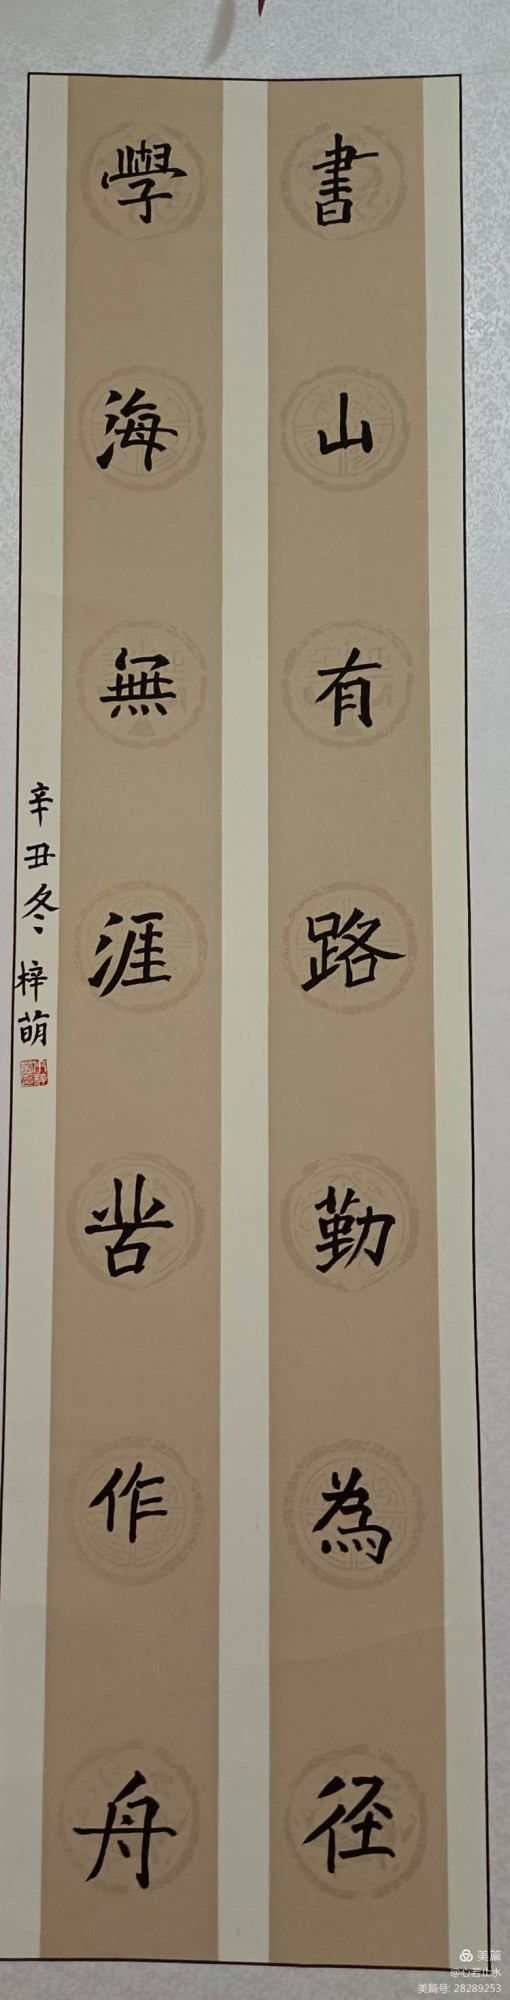 書山有路勤為径
學海無涯苦作舟
辛丑冬 梓萌
美篇
@心若止水
美篇号: 28289253